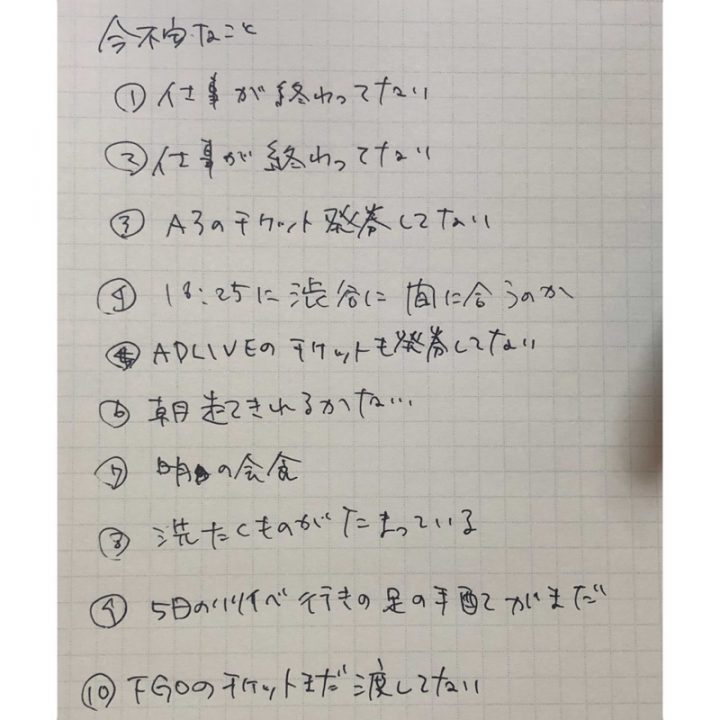 今不安なこと
① 仕事が終わってない
② 仕事が終わってない
③ A3のチケット発券してない
④ 18:25に渋谷に間に合うのか
ADLIVEのチケットも発券してない
⑥ 朝起きれるかない…
⑦ 明日の会食
⑧ 洗たくものがたまっている
⑨ 5日のリリイベ行きの足の手配がまだ
⑩ FGOのチケットまだ渡してない